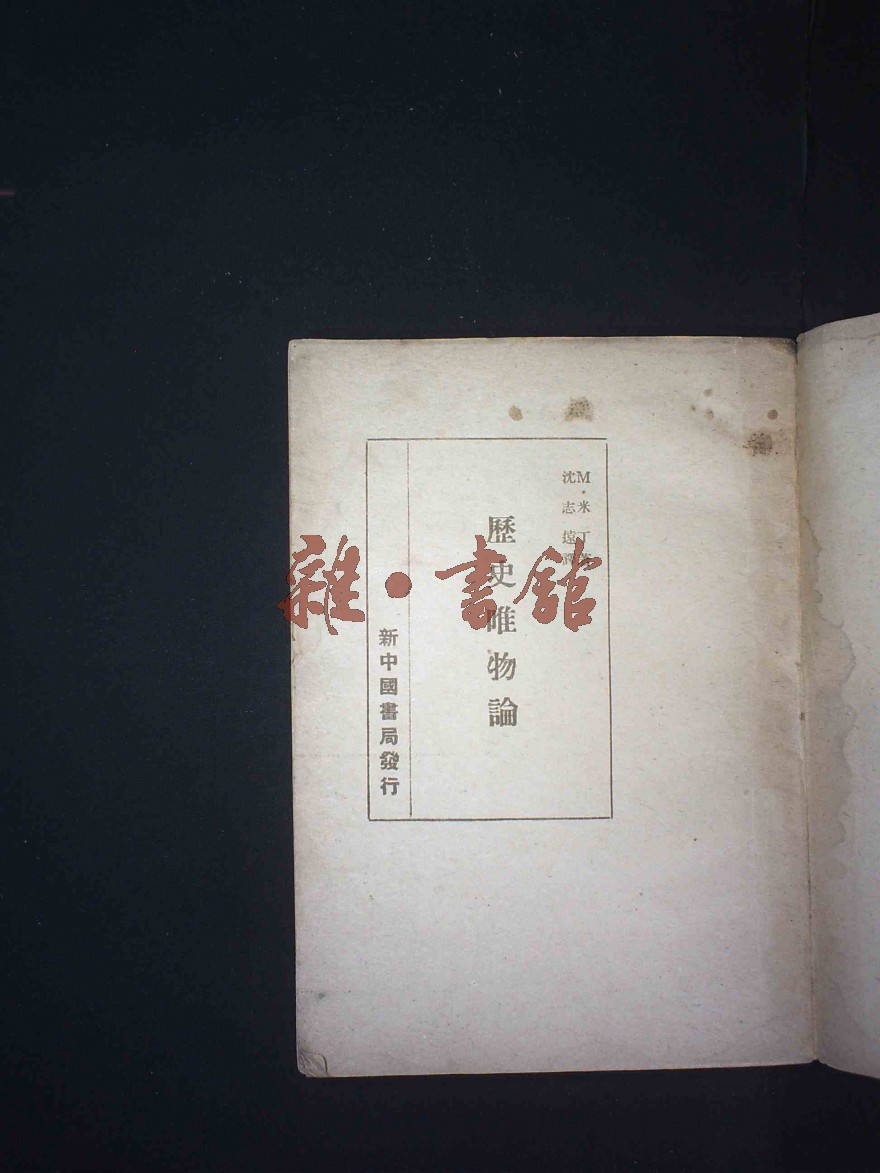 M·米丁著
沈志遠譯
歷史唯物論
新中國書局發行
雜·書館